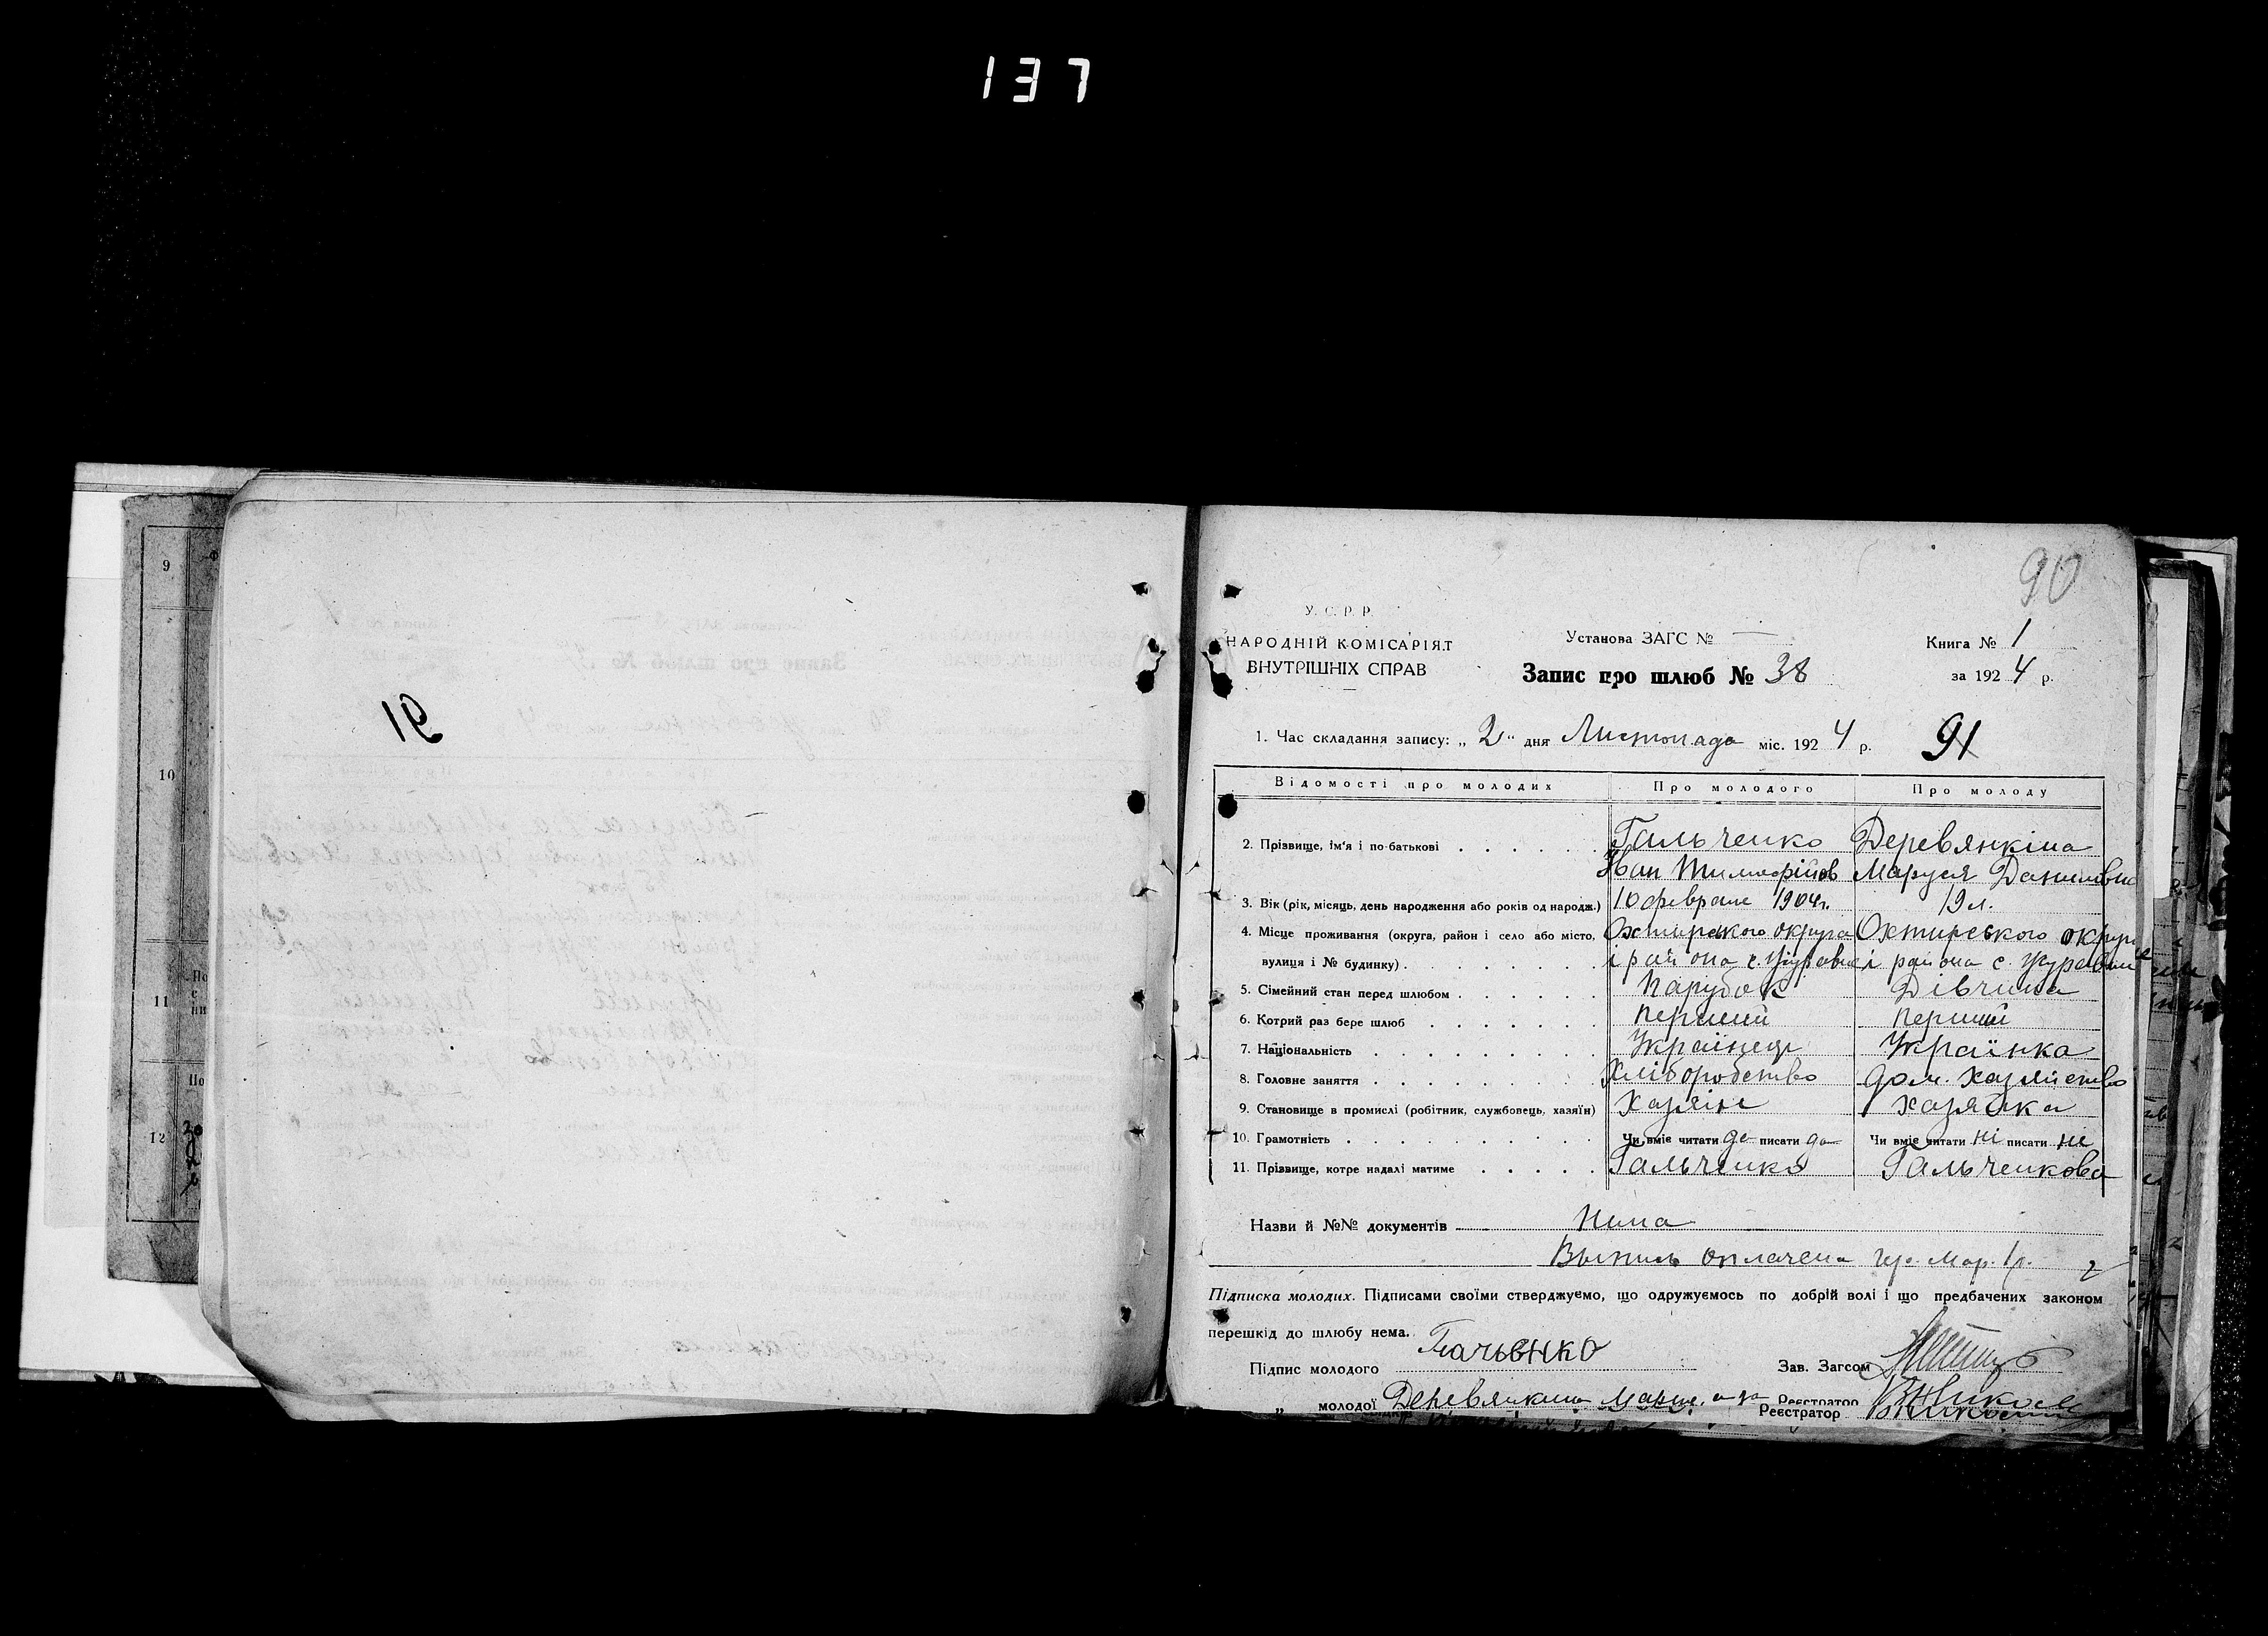 137
90
91
У. С. Р. Р.
НАРОДНІЙ КОМІСАРІЯТ
ВНУТРІШНІХ СПРАВ
Установа ЗАГС № —
Запис про шлюб № 38
Книга № 1
за 1924 р.
1. Час складання запису: „2" дня Листопада міс. 1924 р.
91
Відомості про молодих Про молодого Про молоду
2. Прізвище, ім'я і по-батькові Гальченко Деревянкіна
Іван Тимофійов Маруся Данилівна
3. Вік (рік, місяць, день народження або років од народж.) 10 февраля 1904г. 19 л.
4. Місце проживання (округа, район і село або місто, Охтирського округа Охтирського округа
вулиця і № будинку) і района с. Журавне і района с. Журавни
5. Сімейний стан перед шлюбом Парубок Дівчина
6. Котрий раз бере шлюб перший перший
7. Національність Українець Українка
8. Головне заняття Хліборобство дом. хазяйство
9. Становище в промислі (робітник, службовець, хазяїн) Хазяін хазяйка
10. Грамотність Чи вміє читати да писати да Чи вміє читати ні писати ні
11. Прізвище, котре надалі матиме Гальченко Гальченкова
Назви й №№ документів Нима
Выпись оплачена гер. мар. 1 р.
Підписка молодих. Підписами своїми стверджуємо, що одружуємось по добрій волі і що предбачених законом
перешкід до шлюбу нема.
Підпис молодого Гачьвнко Зав. Загсом
„ молодої Деревянкина Реєстратор
Реєстратор
9
10
11
12